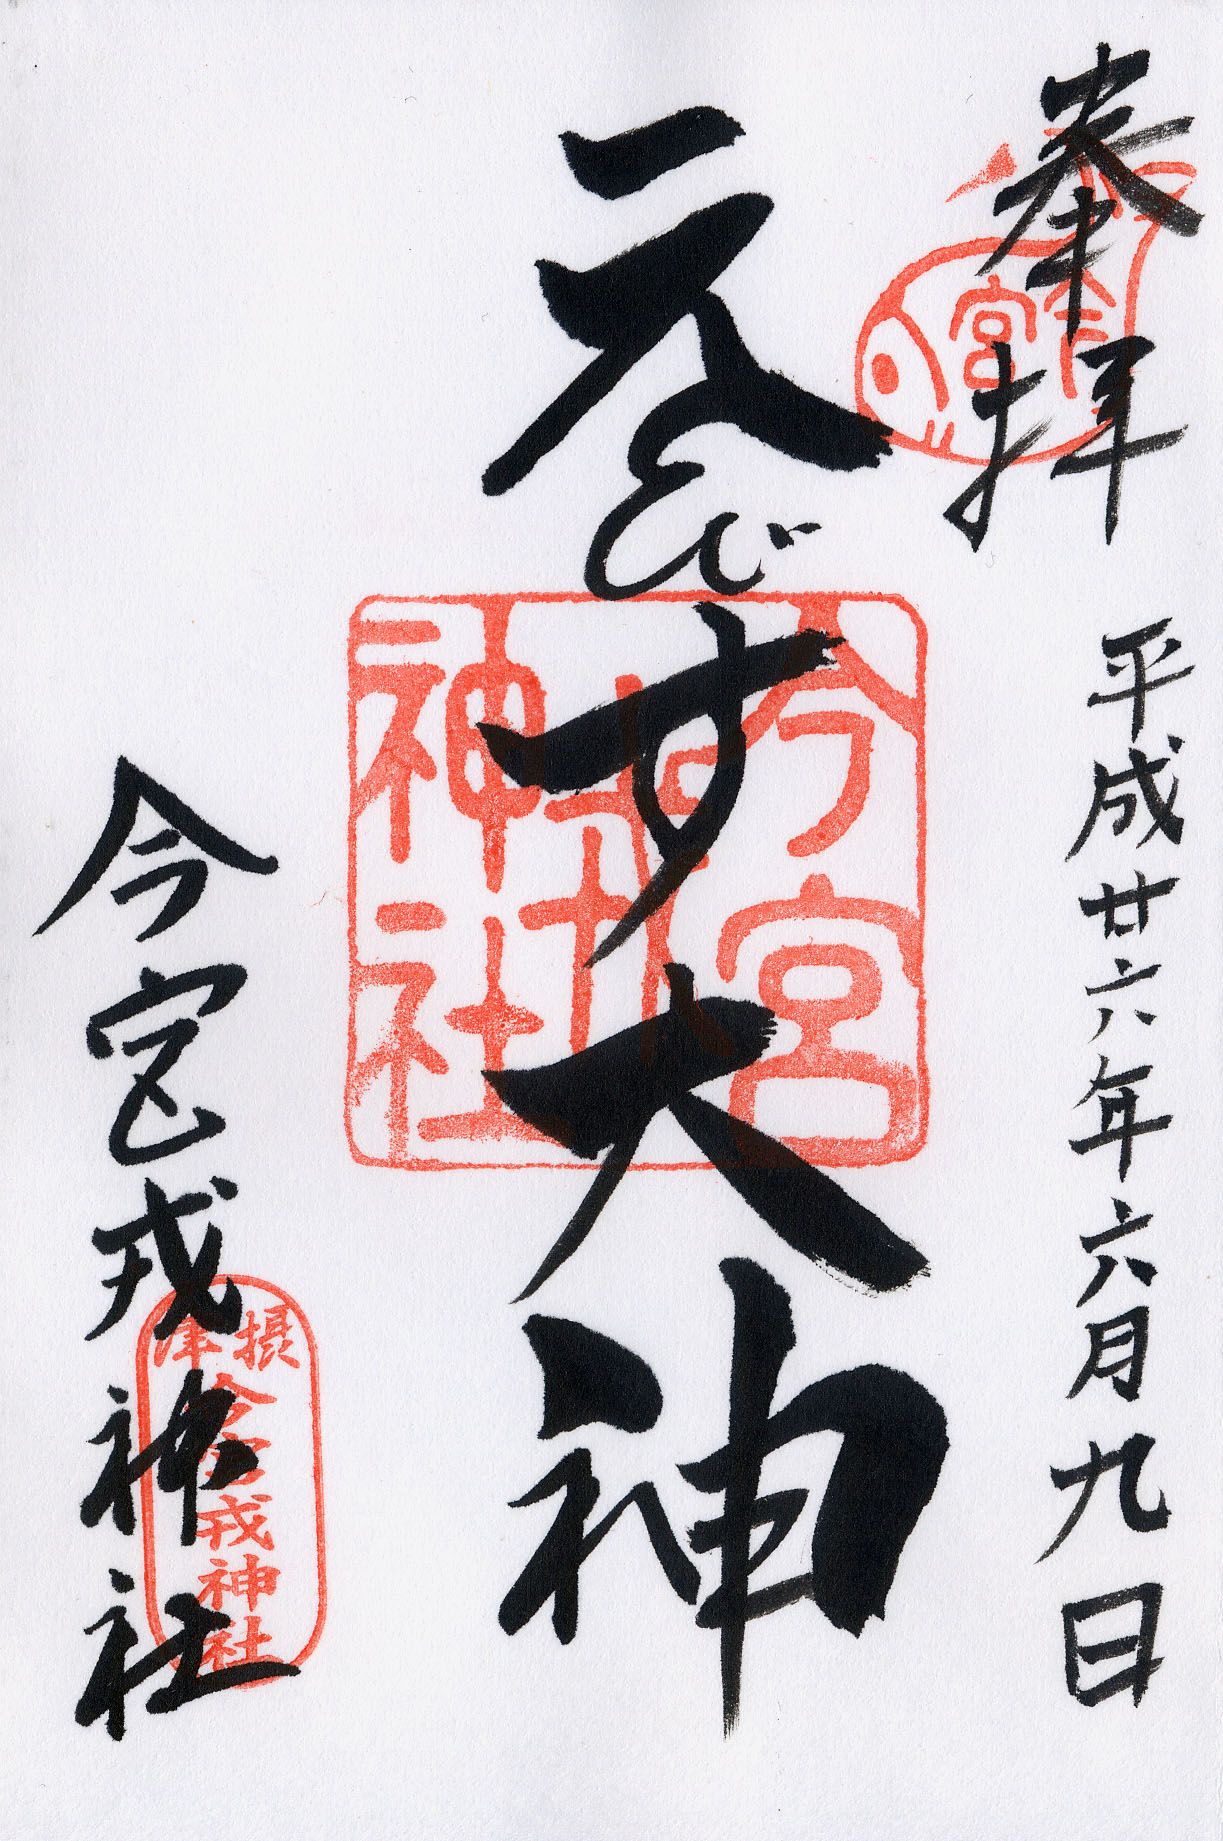 奉拝
今宮
平成廿六年六月九日
ゑびす大神
今宮戎神社
今宮戎神社
摂津
今宮戎神社